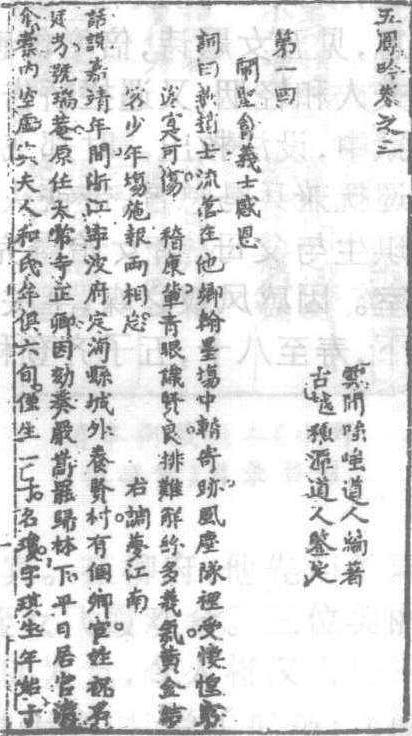 五鳳吟卷之二
雲間嗤嗤道人編著
古越獲源道人鑒定
第一回
鬧聖會義士感恩
詞曰教趙士流落在他鄉翰墨場中輪奇跡風塵隊裡受悽惶
滋寔可傷 稽康輩青眼識賢良排難解紛多義氣黃金結
客少年場施報兩相忘
右調夢江南
話說嘉靖年間浙江寧波府定海縣城外養賢村有個鄉官姓祝名
廷芳號瑞菴原任太常寺正卿因劾奏嚴嵩罷歸林下平日居官清
介囊內空虛與夫人和氏年俱六旬僅生一子名瓊字琪生年始十